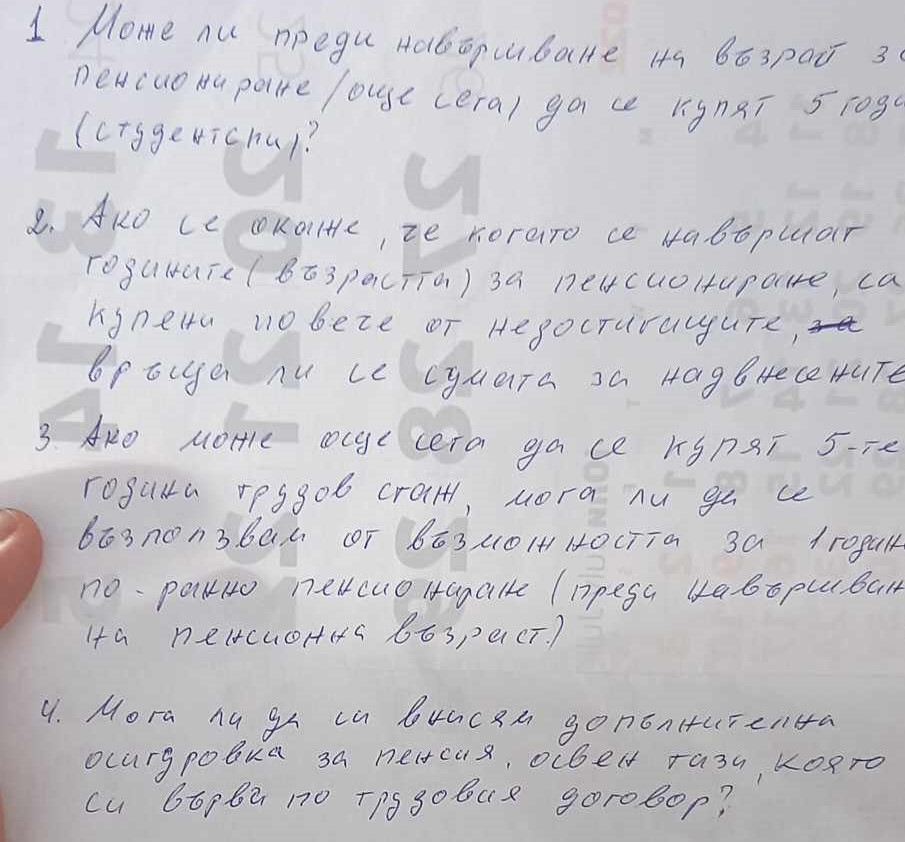 1 Може ли преди навършване на възраст за
пенсиониране /още сега/ да се купят 5 годи
(студентски)?
2. Ако се окаже, че когато се навършат
годините (възрастта) за пенсиониране, са
купени повече от недостигащите,
връща ли се сумата за надвнесените
3. Ако може още сега да се купят 5-те
години трудов стаж, мога ли да се
възползвам от възможността за 1 годин
по-ранно пенсиониране (преди навършван
на пенсионна възраст.)
4. Мога ли да си внисям допълнителна
осигуровка за пенсия, освен тази, която
си върви по трудовия договор?